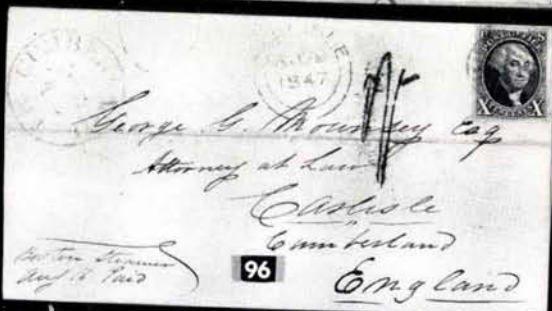 POST OFFICE
X CENTS X
1847
George G. Mounsey Esq
Attorney at Law
Carlisle
Cumberland
England
Boston Steamer
Aug 16 Paid
96